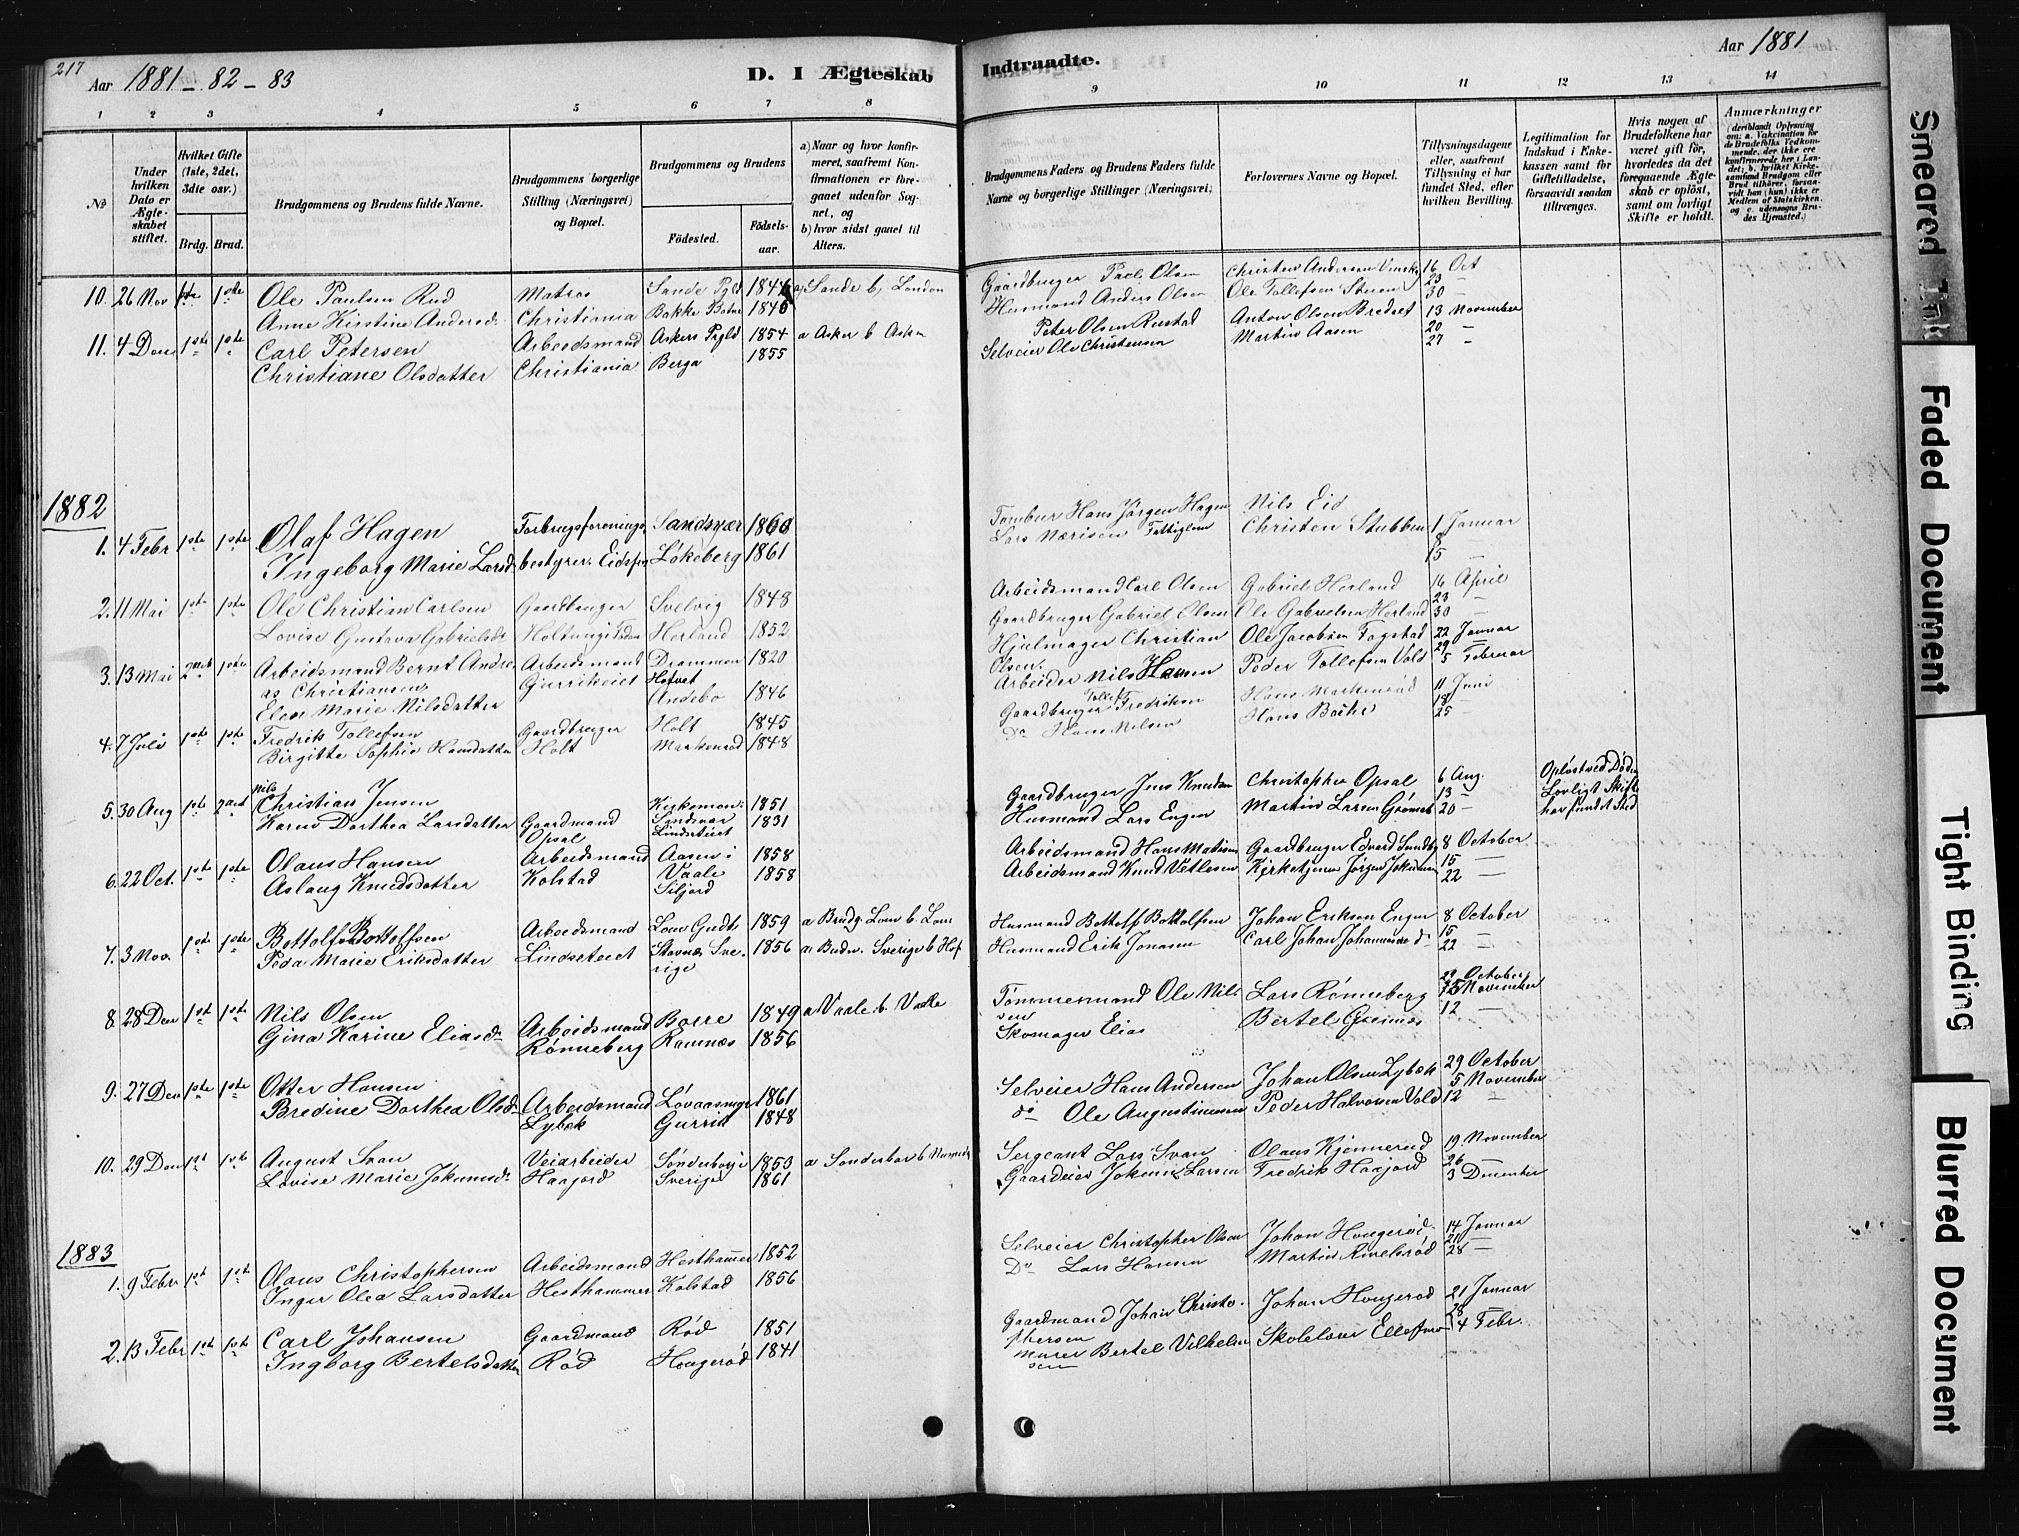 217
Aar 1881 - 82 - 83
D. I Ægteskab
Indtraadte.
Aar 1881
1 2 3 4 5 6 7 8 9 10 11 12 13 14
No
Under hvilken Dato er Ægteskabet stiftet.
Hvilket Gifte (1ste, 2det, 3die osv.)
Brdg. Brud.
Brudgommens og Brudens fulde Navne.
Brudgommens borgerlige Stilling (Næringsvei) og Bopæl.
Brudgommens og Brudens
Fødested.
Fødselsaar.
a) Naar og hvor konfirmeret, saafremt Konfirmationen er foregaaet udenfor Sognet, og
b) hvor sidst gaaet til Alters.
Brudgommens Faders og Brudens Faders fulde Navne og borgerlige Stillinger (Næringsvei)
Forlovernes Navne og Bopæl.
Tillysningsdagene eller, saafremt Tillysning ei har fundet Sted, efter hvilken Bevilling.
Legitimation for Indskud i Enkekassen samt for Giftetilladelse, forsaavidt saadan tiltrænges.
Hvis nogen af Brudefolkene har været gift før, hvorledes da det foregaaende Ægteskab er opløst, samt om lovligt Skifte er holdt.
Anmærkninger
(deriblandt Oplysning om: a. Vakcination for de Brudefolks Vedkommende, der ikke ere konfirmerede her i Landet; b. hvilket Kirkesamfund Brudgom eller Brud tilhører, forsaavidt han (hun) ikke er Medlem af Statskirken, og c. udensogns Brudes Hjemsted.)
10. 26 Nov 1ste 1ste Ole Paulsen Rud Matros Sande Pgld 1846 a) Sande b) London Gaardbruger Paul Olsen Christen Andersen 16 Oct
Anne Kirstine Andersd. Christiania Bakke Botne 1846 Husmand Anders Olsen Ole Tollefsen 23
30 -
11. 4 Dec 1ste 1ste Carl Petersen Arbeidsmand Askers Pgld 1854 a Asker b Asker Peter Olsen Rustad Anton Olsen Bredset 13 November
Christiane Olsdatter Christiania Berga 1855 Selveier Ole Christensen Martin Aasen 20 -
27 -
1882
1. 4 Febr 1ste 1ste Olaf Hagen Forbrugsforenings Sandsvær 1860 Tambur Hans Jørgen Hagen Nils Eid 1 Januar
Ingeborg Marie Larsd. bestyrer. Eidsfos Løkeberg 1861 Lars Fattiglem Christen Stubben 8
15 -
2. 11 Mai 1ste 1ste Ole Christian Carlsen Gaardbruger Svelvig 1848 Arbeidsmand Carl Olsen Gabriel Herland 16 April
Lovise Gustava Gabrielsdr Herland 1852 Gaardbruger Gabriel Olsen Ole Gabrielsen Herland 23 -
30 -
3. 13 Mai 2det 1ste Arbeidsmand Bernt Andre- Arbeidsmand Drammen 1820 Hjulmager Christian Ole Jacobsen Fogstad 22 Januar
as Christiansen Hofvet Olsen. 29
Elen Marie Nilsdatter Andebo 1846 Arbeider Nils Hansen Peder Tollefsen Vold 5 Februar
4. 7 Juli 1ste 1ste Fredrik Tollefsen Gaardbruger Holt 1845 Gaardbruger Tollef Fredriksen 11 Juni
Birgitte Sophie Hansdatter Holt Markenrød 1848 Do Hans Nilsen Hans Bache 18
25 -
5. 30 Aug 1ste 2det Nils Christian Jensen Gaardmand 1851 Gaardbruger Jens Knudsen Christopher Opsal 6 Aug. Opløst ved Døden
Karen Dorthea Larsdatter Opsal Lindseteiet 1831 Husmand Lars Engen Martin Larsen 13 - Lovligt Skifte
20 - har fundet Sted
6. 22 Oct. 1ste 1ste Olaus Hansen Arbeidsmand Aasen i Vaale 1858 Arbeidsmand Hans Gaardbruger Edvard 8 October
Aslaug Knudsdatter Kolstad Siljord 1858 Arbeidsmand Knud Vetlesen Kirketjener Jørgen 15 -
22 -
7. 3 Nov. 1ste 1ste Bottolf Bottolfsen Arbeidsmand Lom Gudb. 1859 a Brudg. Lom b. Lom Husmand Bottolf Bottolfsen Johan Eriksen Enger 8 October
Peda Marie Eriksdatter Lindseteiet Stavnæs Sverige 1856 a Bruden. Sverige b Hof Husmand Erik Jonasen Carl Johan Johannesen do 15 -
22 -
8. 28 Dec 1ste 1ste Nils Olsen Arbeidsmand Borre 1849 a Vaale b. Vaale Tømmermand Ole Nils- Lars Rønneberg 29 October
Gina Karine Eliasdr Rønneberg Ramnæs 1856 sen 5 November
Skomager Elias Bertel 12 -
9. 27 Dec 1ste 1ste Otter Hansen Arbeidsmand 1861 Selveier Hans Andersen Johan Olsen Lybæk 29 October
Bredine Dorthea Olsdr Lybæk Gurrik 1848 do Ole Augustinussen Peder Halvorsen Vold 5 November
12 -
10. 29 Dec 1ste 1ste August Svan Veiarbeider Sønderborg i 1853 a Sonderbor b Sergeant Lars Svan Olaus Kjennerud 19 November
Lovise Marie Jokumsdr Haajord Sverige 1861 Gaardeier Jokum Larsen Fredrik Haajord 26
3 December
1883
1. 9 Febr. 1ste 1ste Olaus Christophersen Arbeidsmand Hesthammer 1852 Selveier Christopher Olsen Johan Hougerød 14 Januar
Inger Olea Larsdatter Hesthammer Kolstad 1856 Do Lars Hansen Martin 21
28 -
2. 13 Febr 1ste 1ste Carl Johansen Gaardmand Rød 1851 Gaardmand Johan Christo- Johan Hougerød 21 Januar
Ingborg Bertelsdatter Rød Hougerød 1841 phersen 28
Murer Bertel Vilhelm- Skolelærer Ellefsen 4 Febr.
sen
Smeared Ink
Faded Document
Tight Binding
Blurred Document